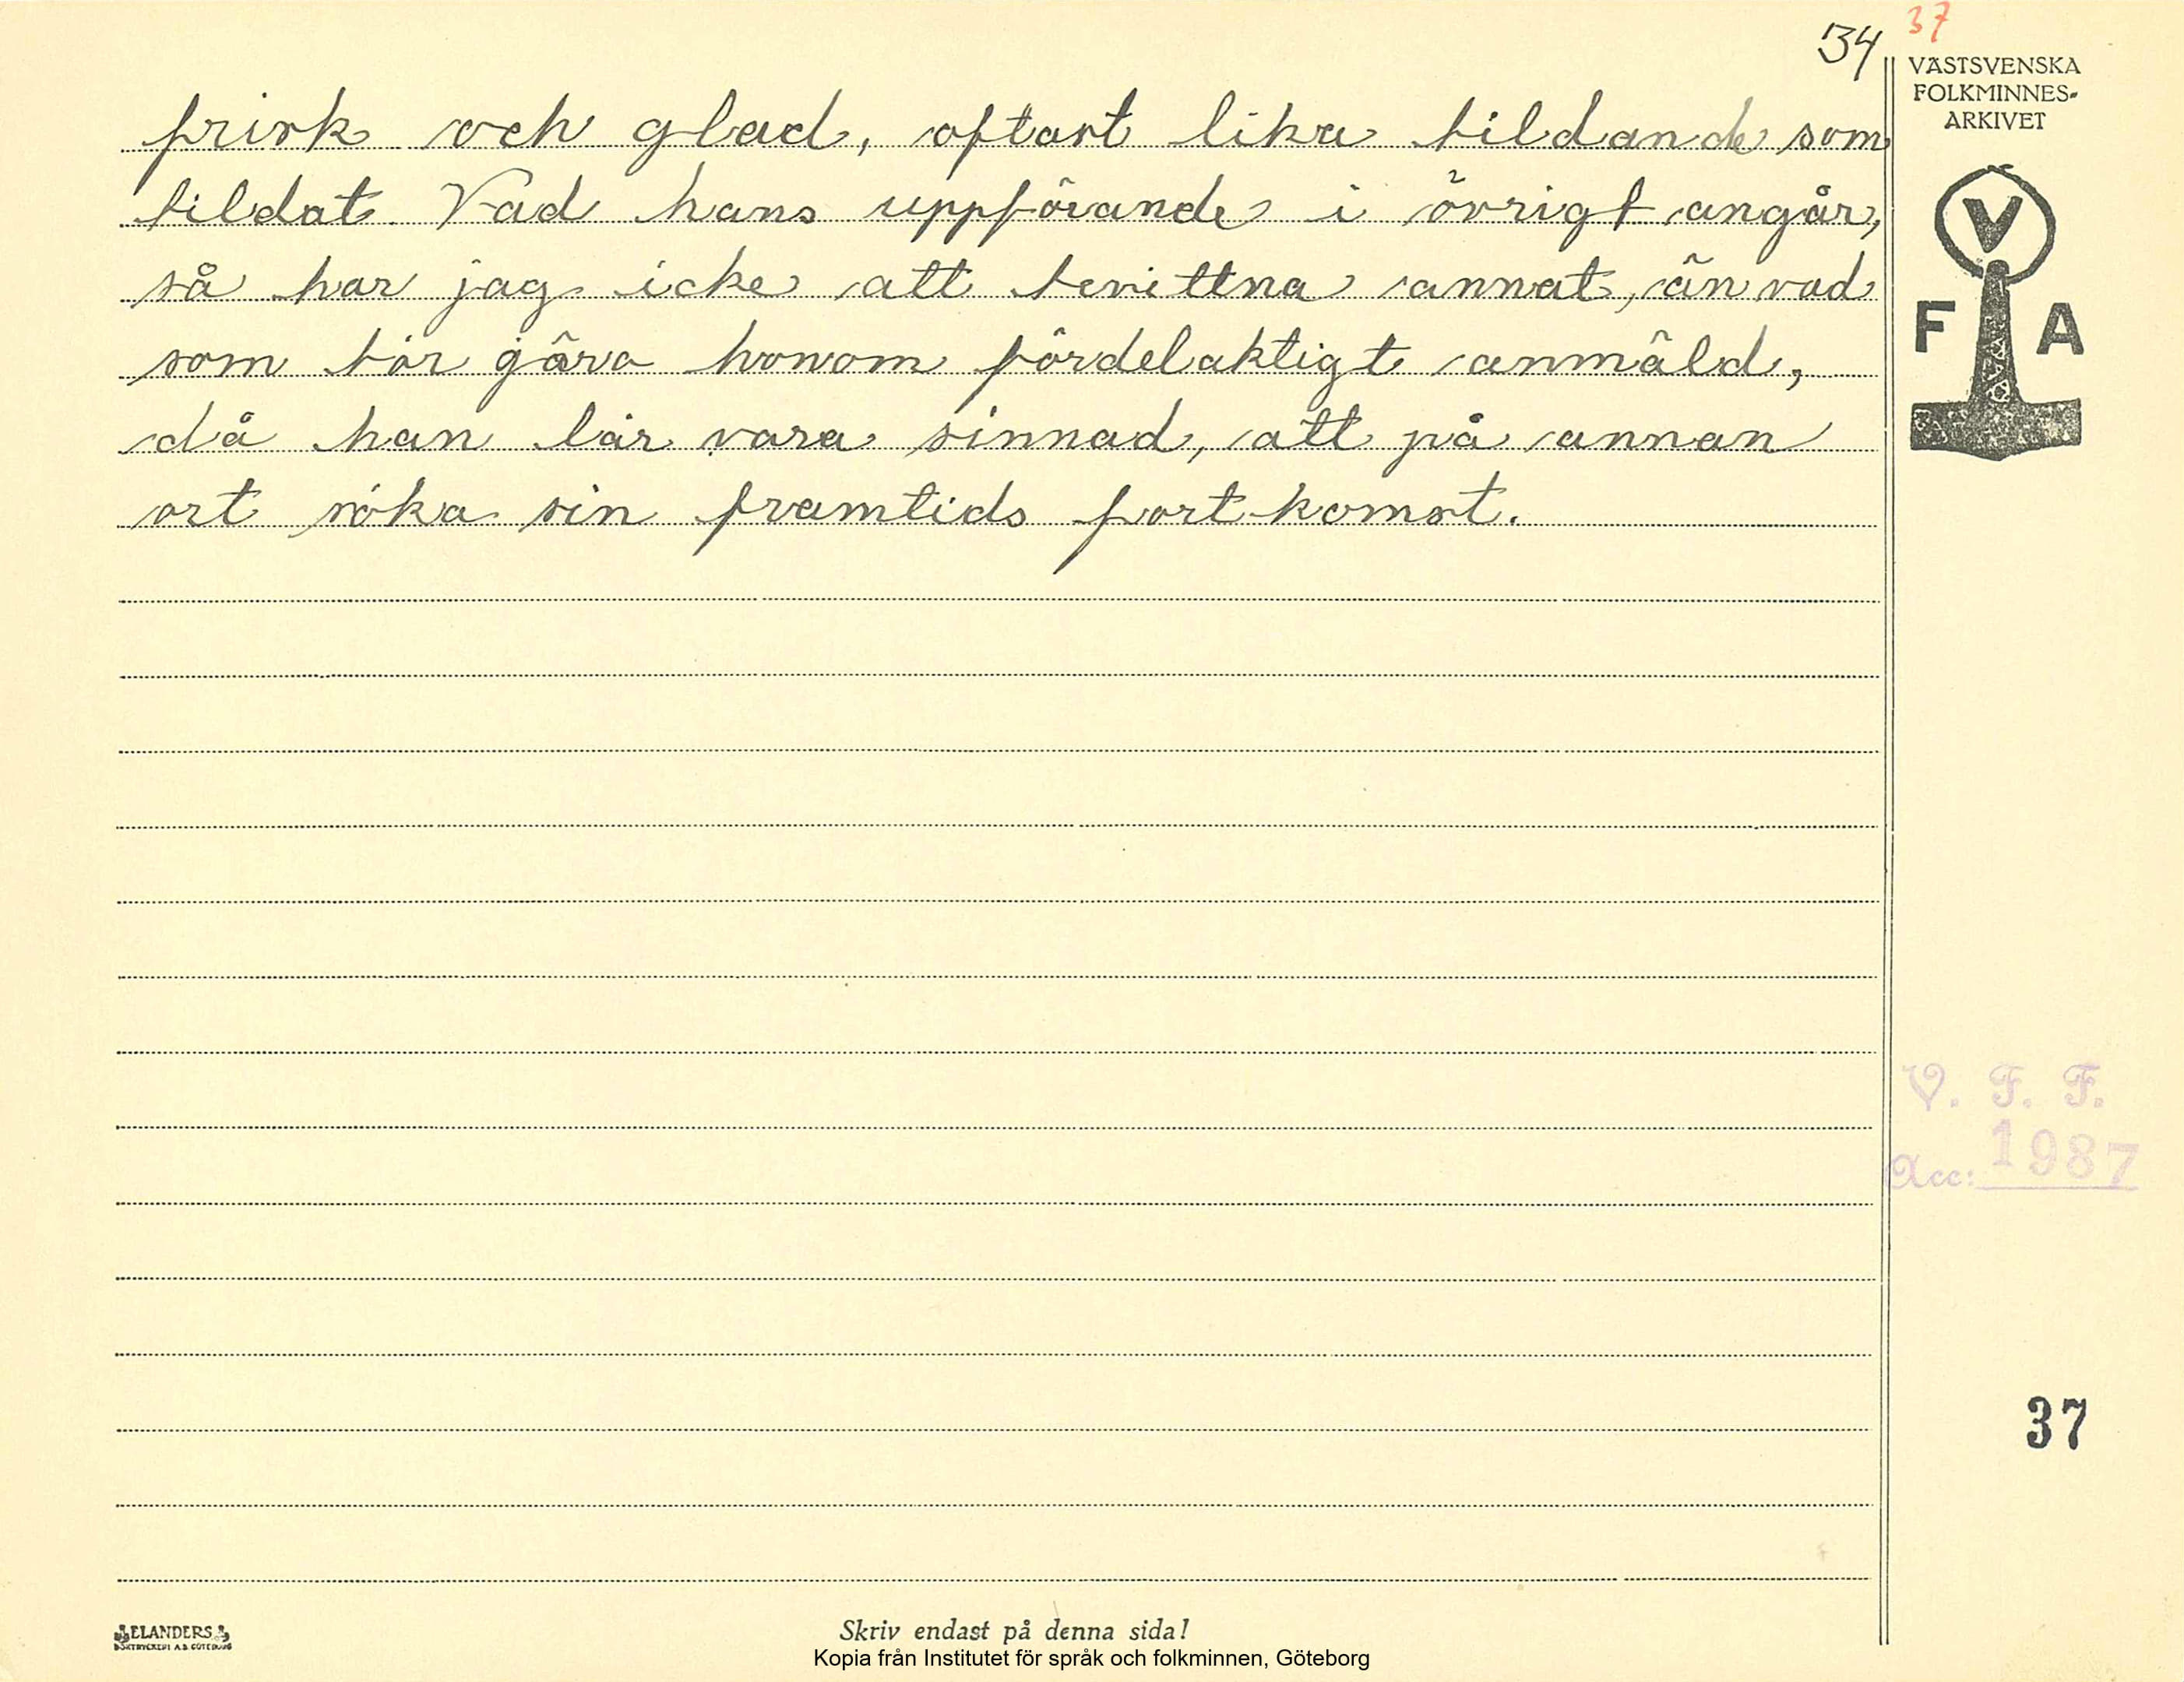 34 37
VÄSTSVENSKA
FOLKMINNES-
ARKIVET
frisk och glad, oftast lika bildande som
bildat. Vad hans uppförande i övrigt angår,
så har jag icke att bevittna annat, än vad
som bör göra honom fördelaktigt anmäld,
då han lär vara sinnad, att på annan
ort söka sin framtids fortkomst.
V
F A
V. F. F.
Acc: 1987
37
ELANDERS
BOKTRYCKERI A.B. GÖTEBORG
Skriv endast på denna sida!
Kopia från Institutet för språk och folkminnen, Göteborg